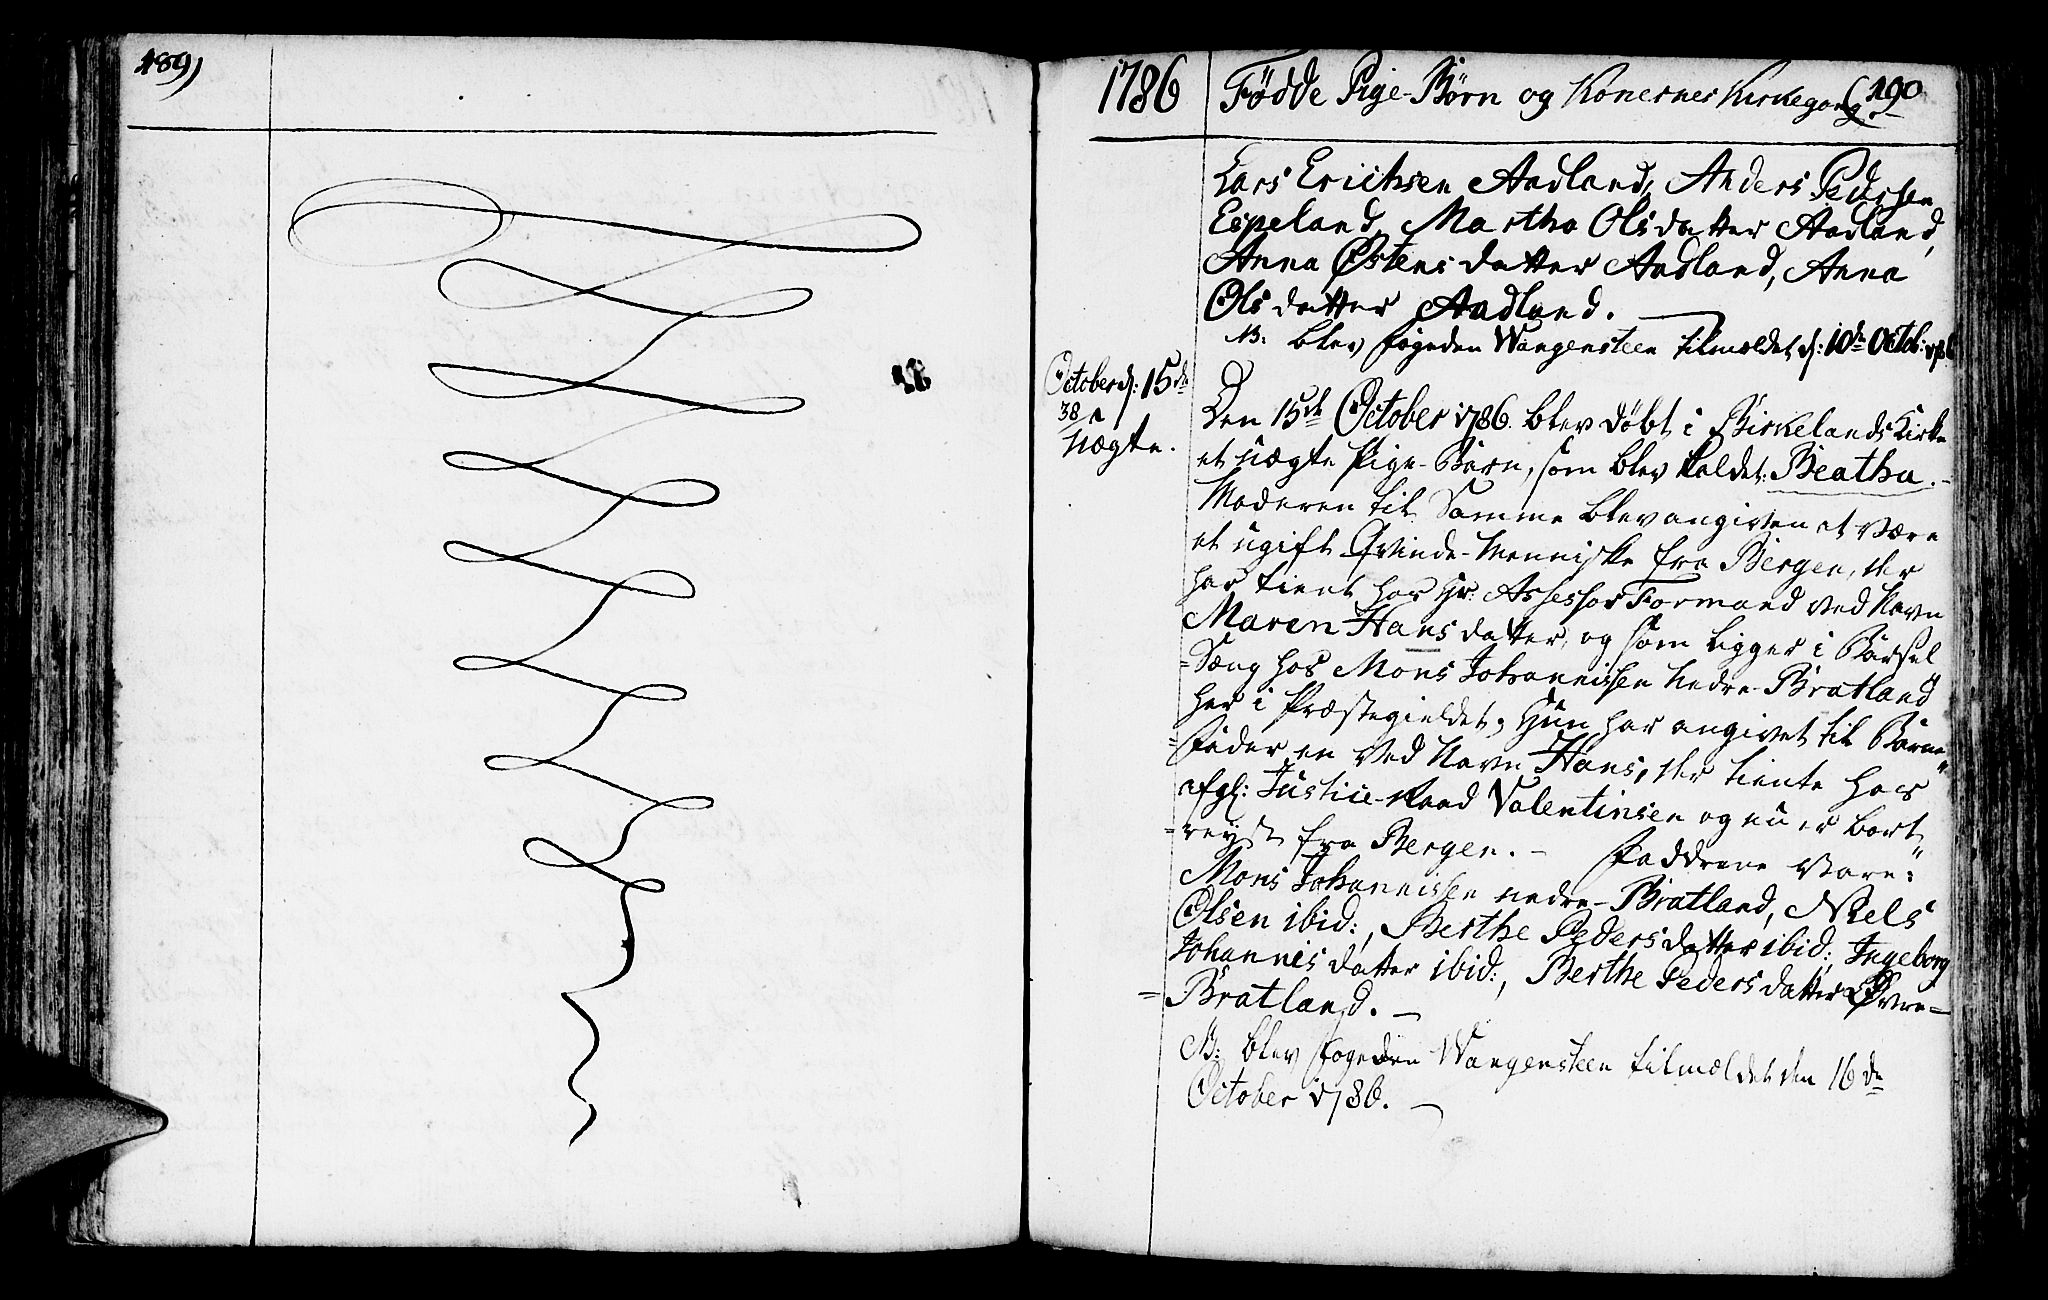 189)
1786 Fødde Pige-Børn og Konernes Kirkegang (190
Lars Erichsen Aadland, Anders Pedersen
Espeland, Martha Olsdatter Aadland,
Anna Østensdatter Aadland, Anna
Olsdatter Aadland. —
NB: blev fogeden Wangensteen tilmeldet d: 10de Octob: 1786
October d: 15de
38
uægte.
Den 15de October 1786. blev døbt i Birkelands Kirke
et uægte Pige-Barn, som blev kaldet: Beatha. -
Moderen til Samme blev angiven at være
et ugift Qvinde-Menniske fra Bergen, der
har tient hos Hr: Assessor Formand ved Navn
Maren Hansdatter, og som ligger i Barsel
=Sæng hos Mons Johannissen Nedre-Bratland
her i Præstegieldet; Hun har angivet til Barne
=fader en ved Navn Hans, der tiente hos
afg: Justice-Raad Valentinsen og nu er bort
=reyst fra Bergen. - Faddrene vare:
Mons Johannissen nedre-Bratland, Niels
Olsen ibid:, Berthe Pedersdatter ibid:, Ingeborg
Johannisdatter ibid:, Berthe Pedersdatter Øvre=
=Bratland. —
NB: blev fogeden Wangensteen tilmeldet den 16de
October 1786. —